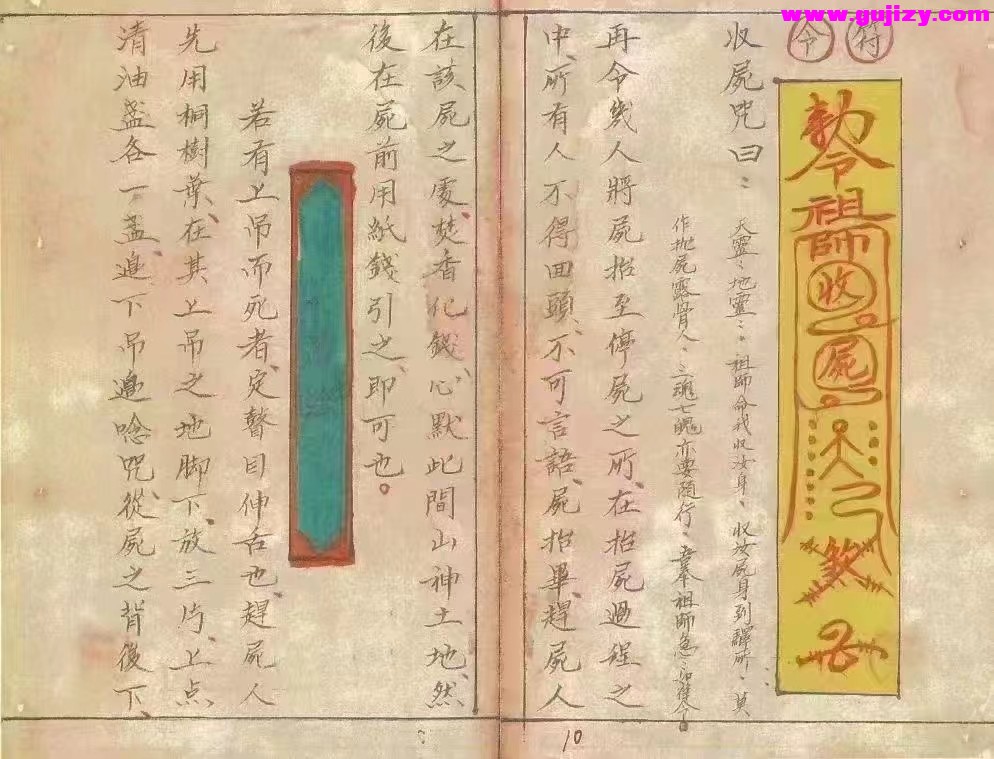 www.gujizy.com
符令
勅令祖師收屍煞
收屍咒曰：
天靈：地靈：祖師命我收汝身、收汝屍身到驛所、莫
作拋屍露骨人、三魂七魄亦要隨行、吾奉祖師急
再令幾人將屍抬至停屍之所、在抬屍過程之
中、所有人不得回頭、不可言語、屍抬畢、趕屍人
10
在該屍之處、焚香化錢、心默此間山神土地、然
後在屍前用紙錢引之、即可也。
若有上吊而死者、定瞽目伸舌也、趕屍人
先用桐樹葉、在其上吊之地脚下、放三片、上点
清油盏各一盏、邉下吊邉唸咒、從屍之背後下、